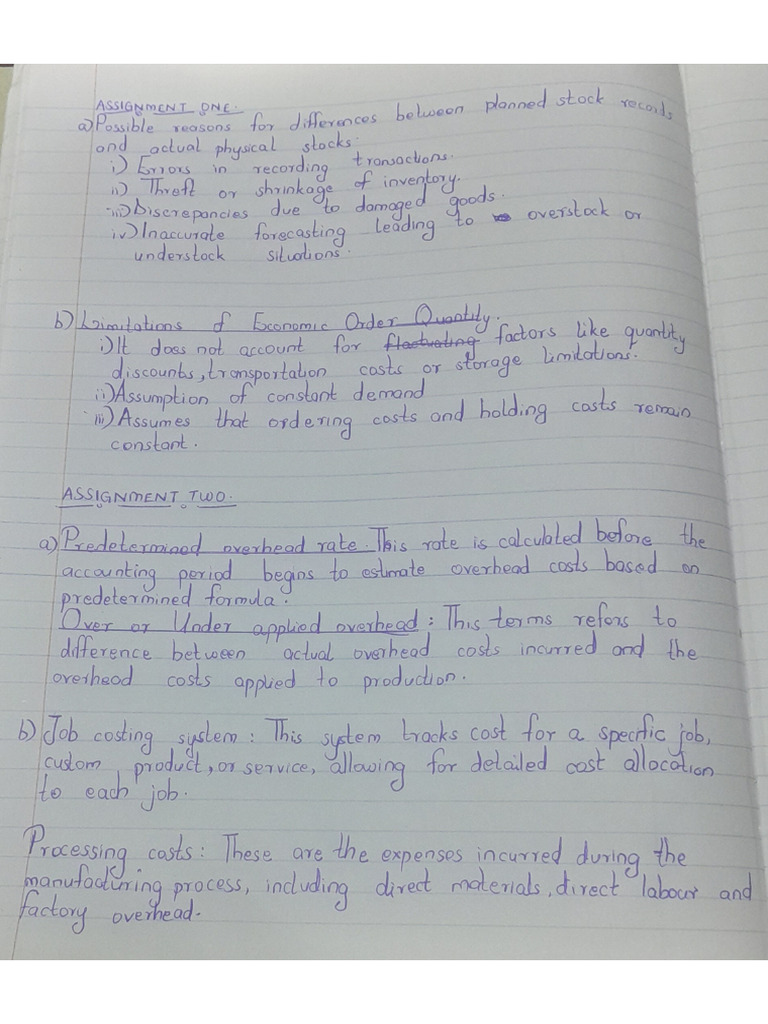 ASSIGNMENT ONE.
a) Possible reasons for differences between planned stock records
and actual physical stocks.
i) Errors in recording transactions.
ii) Threft or shrinkage of inventory.
iii) Discrepancies due to damaged goods.
iv) Inaccurate forecasting leading to overstock or
understock situations.
b) Limitations of Economic Order Quantity.
i) It does not account for fluctuating factors like quantity
discounts, transportation costs or storage limitations.
ii) Assumption of constant demand
iii) Assumes that ordering costs and holding costs remain
constant.
ASSIGNMENT TWO.
a) Predetermined overhead rate. This rate is calculated before the
accounting period begins to estimate overhead costs based on
predetermined formula.
Over or Under applied overhead: This terms refers to
difference between actual overhead costs incurred and the
overhead costs applied to production.
b) Job costing system: This system tracks cost for a specific job,
custom product, or service, allowing for detailed cost allocation
to each job.
Processing costs: These are the expenses incurred during the
manufacturing process, including direct materials, direct labour and
factory overhead.